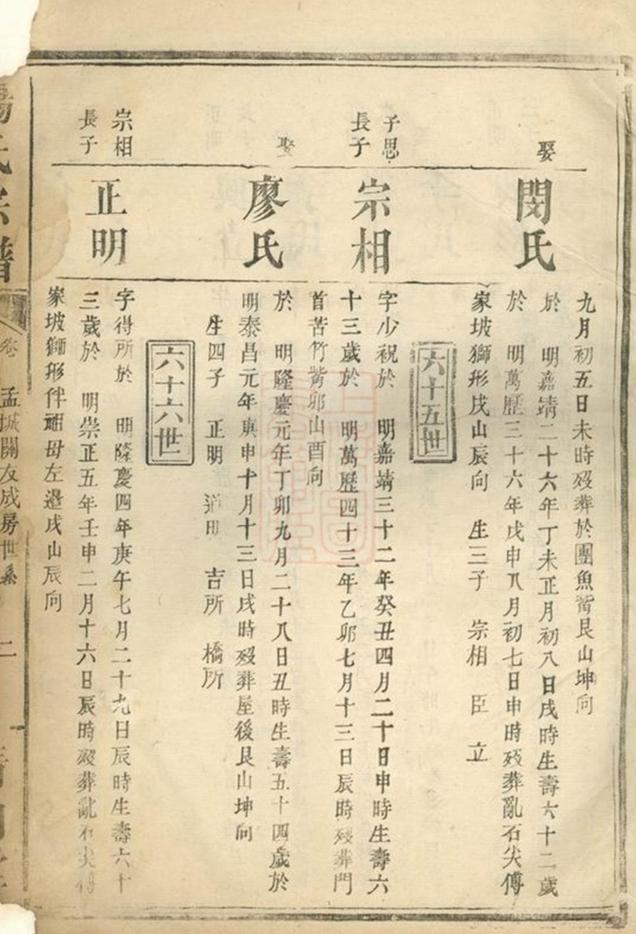 九月初五日未時歿葬於團魚嘴艮山坤向
娶
閔氏
於 明嘉靖二十六年丁未正月初八日戌時生壽六十二歲
於 明萬歷三十六年戊申八月初七日申時歿葬亂石尖傅
家坡獅形戌山辰向 生三子 宗相 臣 立
六十五世
子思
長子
宗相
字少祝於 明嘉靖三十二年癸丑四月二十日申時生壽六
十三歲於 明萬歷四十三年乙卯七月十三日辰時歿葬門
首苦竹嘴卯山酉向
娶
廖氏
於 明隆慶元年丁卯九月二十八日丑時生壽五十四歲於
明泰昌元年庚申十月十三日戌時歿葬屋後艮山坤向
生四子 正明 道明 吉所 橋所
六十六世
宗相
長子
正明
字得所於 明隆慶四年庚午七月二十九日辰時生壽六十
三歲於 明崇正五年壬申二月十六日辰時歿葬亂石尖傅
家坡獅形伴祖母左邊戌山辰向
楊氏宗譜
卷
孟城關友成房世系
二